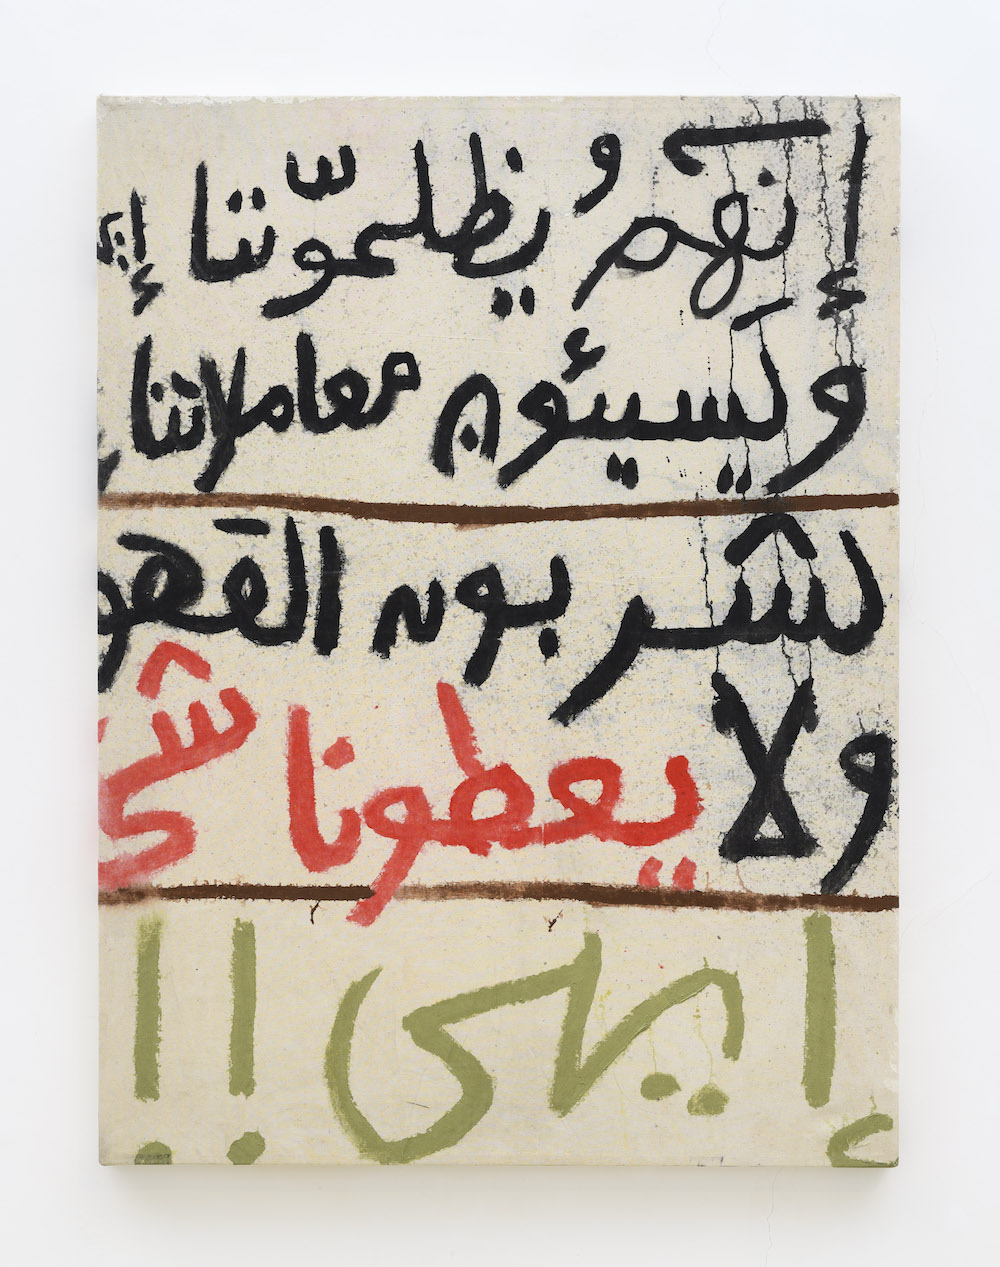 إنهم و يظلموّننا
وكيسيئون معاملاتنا
يشربون القهو
ولا يعطونا شي
!!